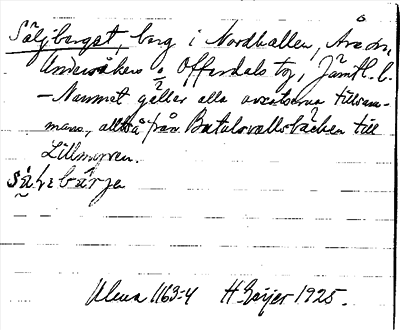 Säljberget, berg i Nordhallen, Åre sn,
Undersåkers o. Offerdals tg, Jämtl. l.
– Namnet gäller alla avsatserna tillsam-
mans, alltså från Batalsvallsbäcken till
Lillmyren.
Ulma 1163:4 H. Geijer 1925.